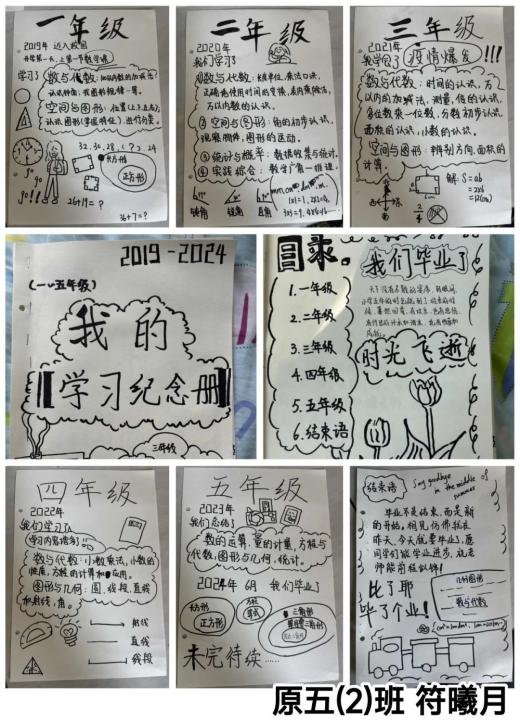 一年级
2019年 迈入校园
开学第一天，上第一节数学课
学习了
数与代数：100以内的加减法
认识钟面，找图形规律等。
空间与图形：位置(上下左右)，
认识图形(掌握特征)，进行分类。
32, 30, 28, ( ? ), 24
长方形
正方形
26+19=?
36+7=?
二年级
2020年
我们学习了
①数与代数：长度单位，乘法口诀，
正确地使用时间的变换，表内乘除法，
万以内数的认识。
②空间与图形：角的初步认识，
观察物件，图形的运动。
③统计与概率：数据收集与统计。
④实践综合：数学广角—推理。
钝角
锐角
直角
1x1=1, 2x1=2
三年级
2021年
我学会了
疫情爆发
!!!
数与代数：时间的认识，万
以内的加减法，测量，倍的认识，
多位数乘一位数，分数初步认识，
面积的认识，小数的认识。
空间与图形：辨别方向，面积的
计算。
北
西
东
南
解：S=ab
=2x6
=12(cm)
2019-2024
(一~五年级)
我的
学习纪念册
三年级
目录。
1.一年级
2.二年级
3.三年级
4.四年级
5.五年级
6.结束语
我们毕业了
时光飞逝
四年级
2022年
我们学习了
学习内容增多了
数与代数：小数乘法，小数的
性质，方程的计算和应用。
图形与几何：圆，线段，直线
和射线，角。
射线
直线
线段
五年级
2023年
我们总结了
数的运算，量的计量，方程与
代数，图形与几何，统计。
2024年 6月 我们毕业了
长方形
正方形
方程
等式
三角形
等腰三角形
未完待续……
结束语
Say goodbye
in the middle of
summer
毕业不是结束，而是新
的开始。相见仿佛就在
昨天，今天就要毕业了，愿
同学们能学业进步，祝老
师能前程似锦！
比了耶
毕了个业！
几何图形
数与代数
原五(2)班 符曦月